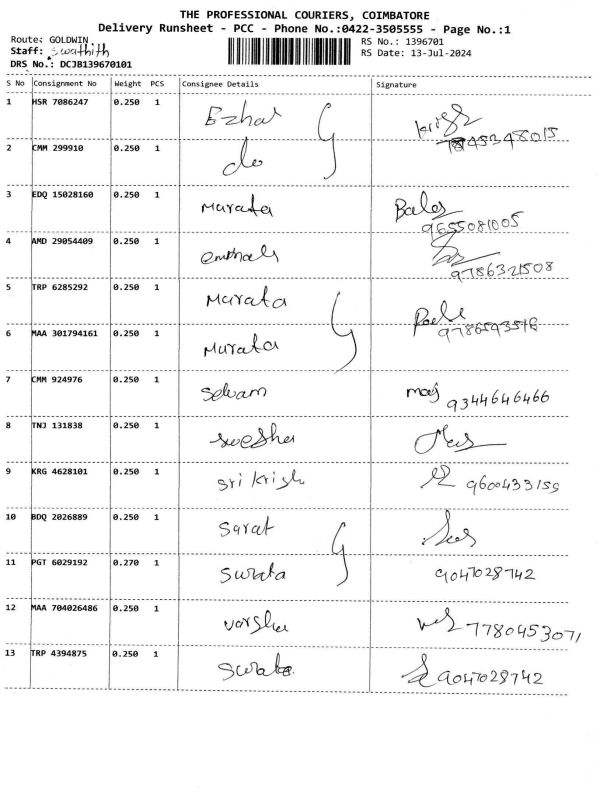 THE PROFESSIONAL COURIERS, COIMBATORE
Delivery Runsheet - PCC - Phone No.:0422-3505555 - Page No.:1
Route: GOLDWIN
RS No.: 1396701
Staff: Swathith
RS Date: 13-Jul-2024
DRS No.: DCJB139670101
S No Consignment No Weight PCS Consignee Details Signature
1 HSR 7086247 0.250 1 Ezhal
2 CMM 299910 0.250 1 do
3 EDQ 15028160 0.250 1 Murata
9655081005
4 AMD 29054409 0.250 1
9786321508
5 TRP 6285292 0.250 1 Murata
6 MAA 301794161 0.250 1 Murata
7 CMM 924976 0.250 1 Selvam 9344646466
8 TNJ 131838 0.250 1
9 KRG 4628101 0.250 1 Sri Krish 9600433159
10 BDQ 2026889 0.250 1 Sarat
11 PGT 6029192 0.270 1 Surata 9047028742
12 MAA 704026486 0.250 1 varsha 7780453071
13 TRP 4394875 0.250 1 Surata 9047028742